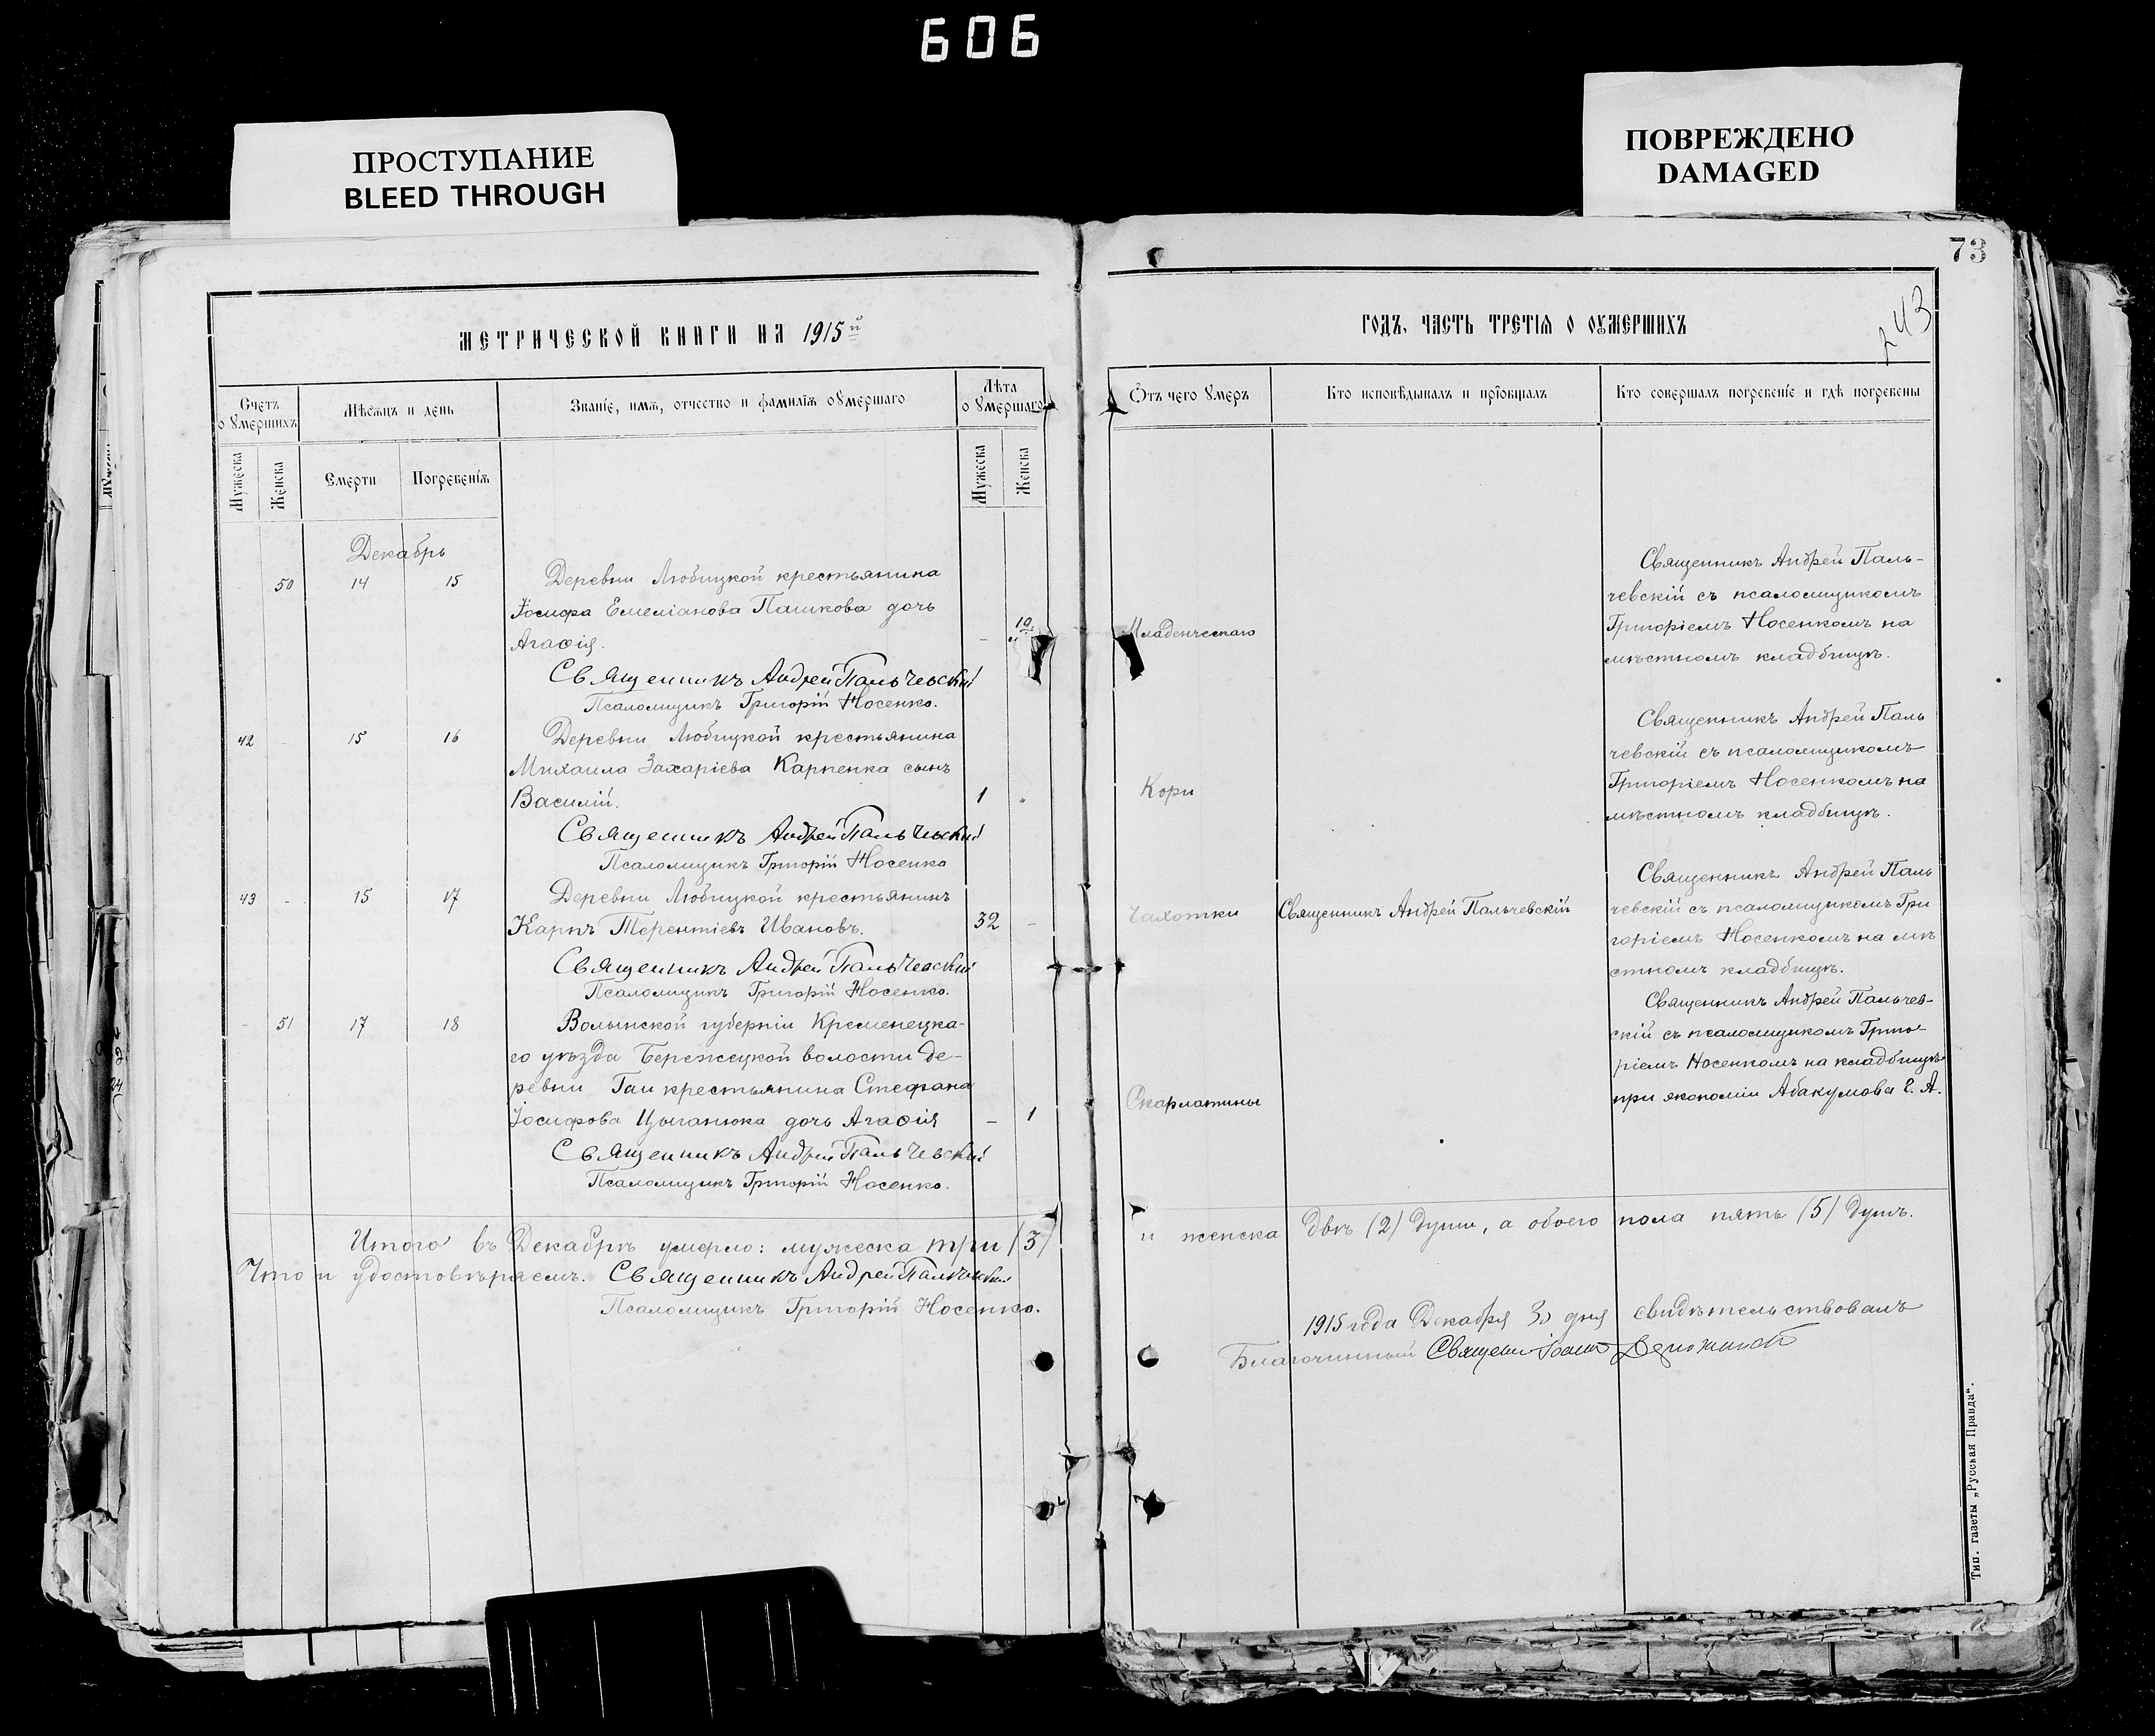 606
ПРОСТУПАНИЕ
BLEED THROUGH
ПОВРЕЖДЕНО
DAMAGED
73
243
МЕТРИЧЕСКОЙ КНИГИ НА 1915й
ГОДЪ, ЧАСТЬ ТРЕТІѦ О ОУМЕРШИХЪ
Счетъ оумершихъ
Мѣсѧцъ и день
Званіе, имѧ, отчество и фамиліѧ оумершаго
Лѣта оумершаго
Ѿъ чего умеръ
Кто исповѣдывалъ и пріобщалъ
Кто совершалъ погребеніе и гдѣ погребены
Мужеска
Женска
Смерти
Погребеніѧ
Мужеска
Женска
Декабрь
50 14 15 Деревни Любицкой крестьянина
Іосифа Емеліанова Пашкова дочь
Агаѳія. - 10 м
Священникъ Андрей Пальчевскій
Псаломщикъ Григорій Носенко.
Младенческаго
Священникъ Андрей Паль-
чевскій съ псаломщикомъ
Григоріемъ Носенкомъ на
мѣстномъ кладбищѣ.
42 - 15 16 Деревни Любицкой крестьянина
Михаила Захаріева Карпенка сынъ
Василій. 1 "
Священникъ Андрей Пальчевскій
Псаломщикъ Григорій Носенко
Кори
Священникъ Андрей Паль
чевскій съ псаломщикомъ
Григоріемъ Носенкомъ на
мѣстномъ кладбищѣ.
43 - 15 17 Деревни Любицкой крестьянинъ
Карпъ Терентіевъ Ивановъ. 32 -
Священникъ Андрей Пальчевскій
Псаломщикъ Григорій Носенко.
Чахотки
Священникъ Андрей Пальчевскій
Священникъ Андрей Паль
чевскій съ псаломщикомъ Гри
горіемъ Носенкомъ на мѣ
стномъ кладбищѣ.
- 51 17 18 Волынской губерніи Кременецка-
го уѣзда Бережецкой волости де-
ревни Гаи крестьянина Стефана
Іосифова Цыганюка дочь Агаѳія - 1
Священникъ Андрей Пальчевскій
Псаломщикъ Григорій Носенко.
Скарлатины
Священникъ Андрей Пальчев-
скій съ псаломщикомъ Григо-
ріемъ Носенкомъ на кладбищѣ
при экономіи Абакумова Г. А.
Итого въ Декабрѣ умерло: мужеска три (3)
и женска двѣ (2) души, а обоего пола пять (5) душъ.
Что и удостовѣряемъ. Священникъ Андрей Пальчевскій
Псаломщикъ Григорій Носенко.
1915 года Декабря 30 дня свидѣтельствовалъ
Благочинный Священ. Іоаннъ
Тип. газеты „Русская Правда“.